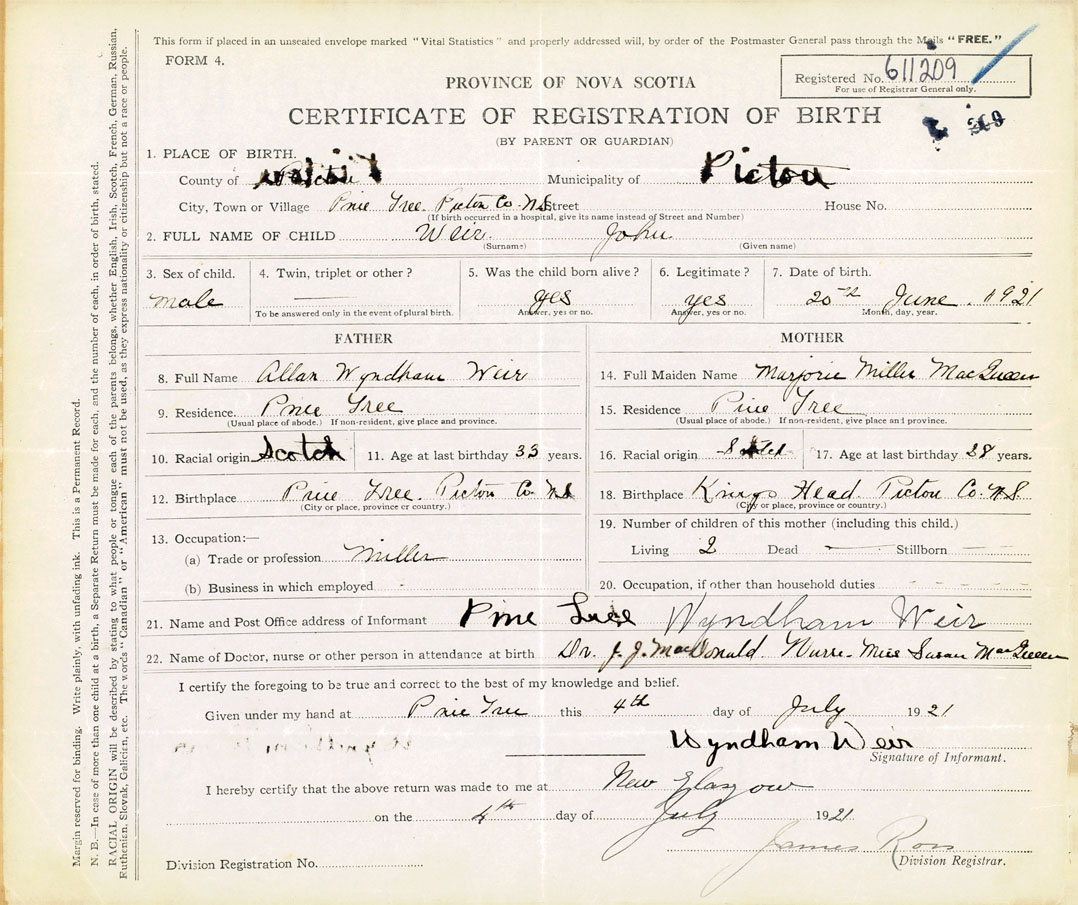 This form if placed in an unsealed envelope marked "Vital Statistics" and properly addressed will, by order of the Postmaster General pass through the Mails "FREE."
FORM 4.
Registered No. 611209
For use of Registrar General only.
PROVINCE OF NOVA SCOTIA
CERTIFICATE OF REGISTRATION OF BIRTH
(BY PARENT OR GUARDIAN)
1. PLACE OF BIRTH.
County of Pictou Municipality of Pictou
City, Town or Village Pine Tree Pictou Co. N.S. Street House No.
(If birth occurred in a hospital, give its name instead of Street and Number)
2. FULL NAME OF CHILD Weir John
(Surname) (Given name)
3. Sex of child. 4. Twin, triplet or other? 5. Was the child born alive? 6. Legitimate? 7. Date of birth.
male yes yes 20th June 1921
To be answered only in the event of plural birth. Answer, yes or no. Answer, yes or no. Month, day, year.
FATHER
8. Full Name Allan Wyndham Weir
9. Residence. Pine Tree
(Usual place of abode.) If non-resident, give place and province.
10. Racial origin Scotch 11. Age at last birthday 33 years.
12. Birthplace Pine Tree. Pictou Co. N.S.
(City or place, province or country.)
13. Occupation:—
(a) Trade or profession Miller
(b) Business in which employed
MOTHER
14. Full Maiden Name Marjorie Miller MacQueen
15. Residence Pine Tree
(Usual place of abode.) If non-resident, give place and province.
16. Racial origin Scotch 17. Age at last birthday 28 years.
18. Birthplace Kings Head. Pictou Co. N.S.
(City or place, province or country.)
19. Number of children of this mother (including this child.)
Living 2 Dead Stillborn
20. Occupation, if other than household duties
21. Name and Post Office address of Informant Pine Tree Wyndham Weir
22. Name of Doctor, nurse or other person in attendance at birth Dr. J. J. MacDonald Nurse- Miss Susan MacQueen
I certify the foregoing to be true and correct to the best of my knowledge and belief.
Given under my hand at Pine Tree this 4th day of July 1921
Wyndham Weir
Signature of Informant.
I hereby certify that the above return was made to me at New Glasgow
on the 4th day of July 1921
James Ross
Division Registrar.
Division Registration No.
Margin reserved for binding. Write plainly, with unfading ink. This is a Permanent Record.
N. B.—In case of more than one child at a birth, a Separate Return must be made for each, and the number of each, in order of birth, stated.
RACIAL ORIGIN will be described by stating to what people or tongue each of the parents belongs, whether English, Irish, Scotch, French, German, Russian,
Ruthenian, Slovak, Galician, etc. The words "Canadian" or "American" must not be used, as they express nationality or citizenship but not a race or people.